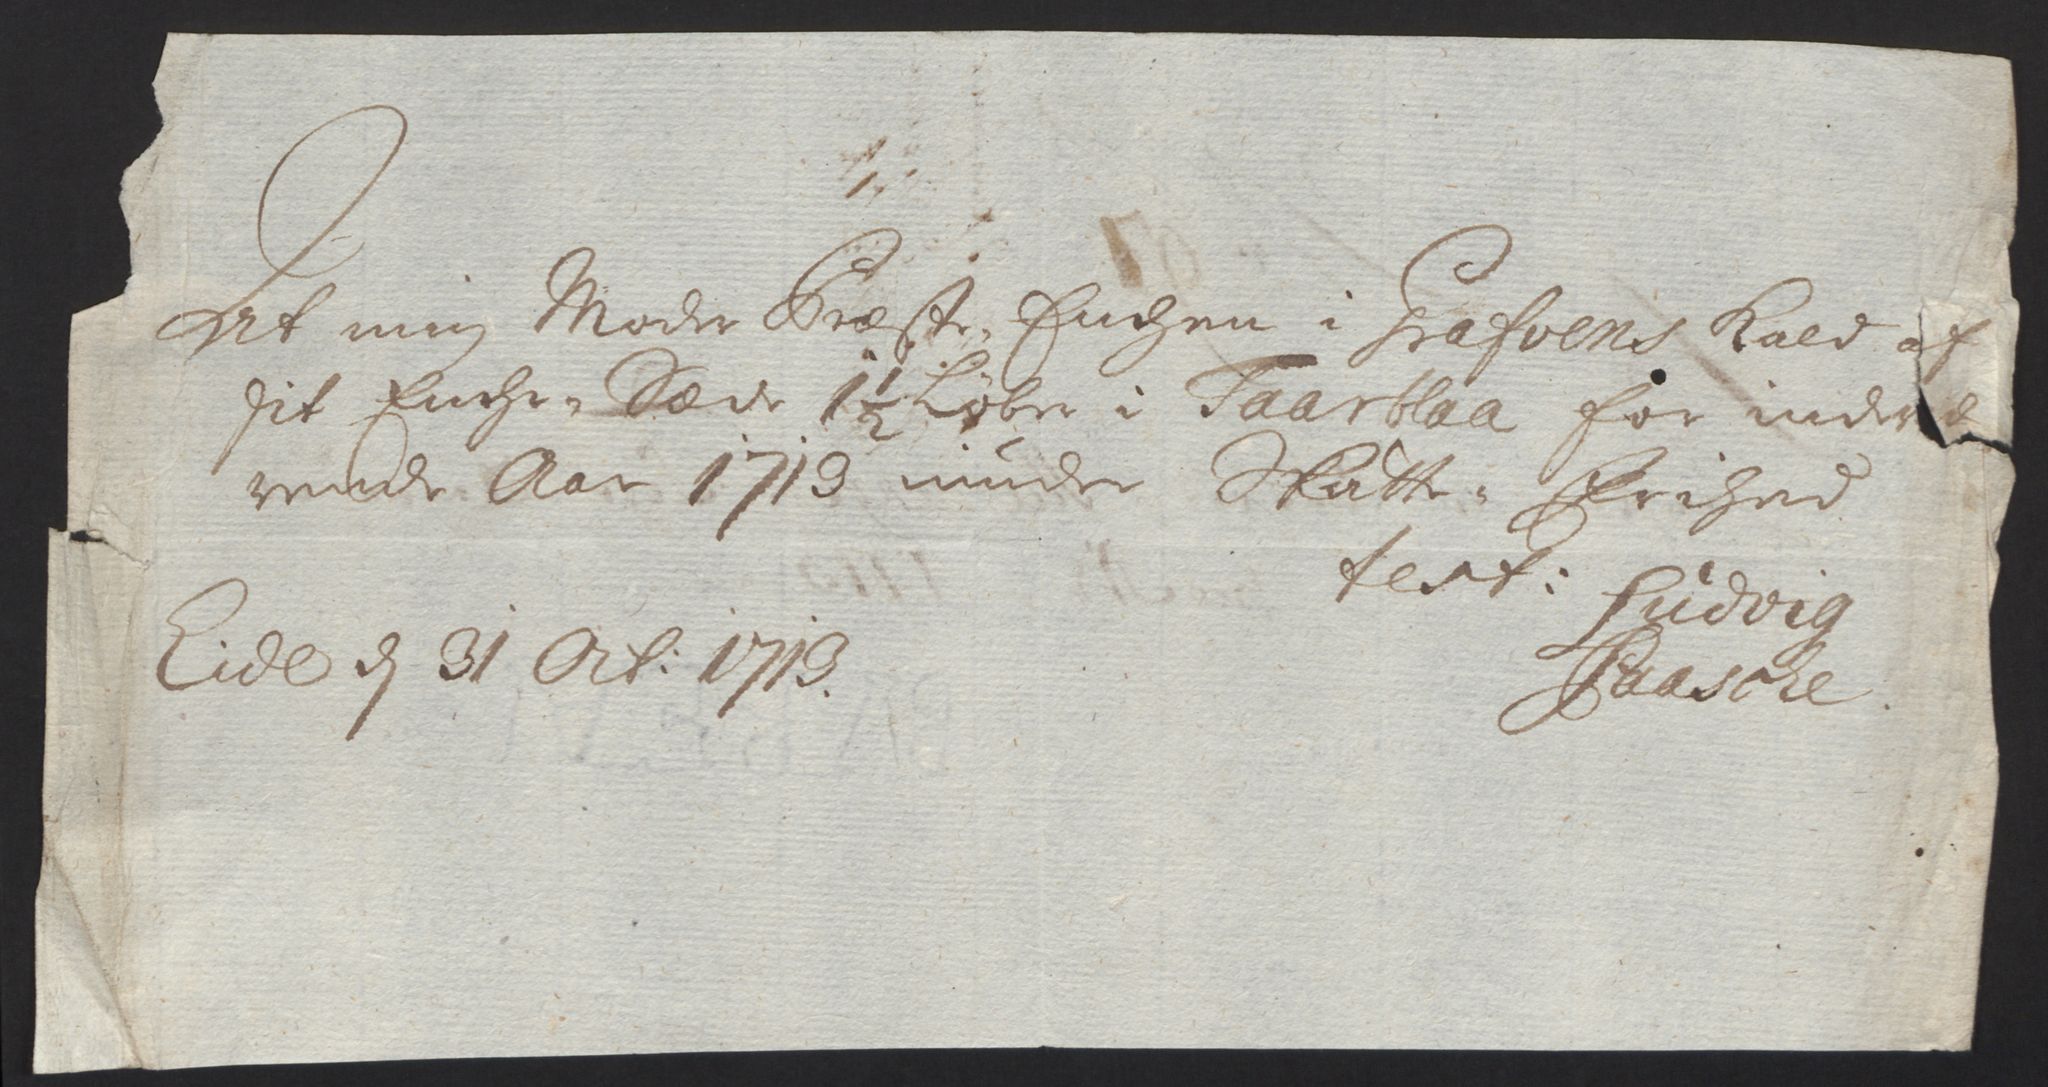 At min Moder Præste-Enchen i Grafvens Kald af
sit Enche-Sæde 1 1/2 Løber i Taarblaa for inde
rende Aar 1713 niuder Skatte-Frihed
test: Ludvig
Paasche
Eide d 31 Oct: 1713.